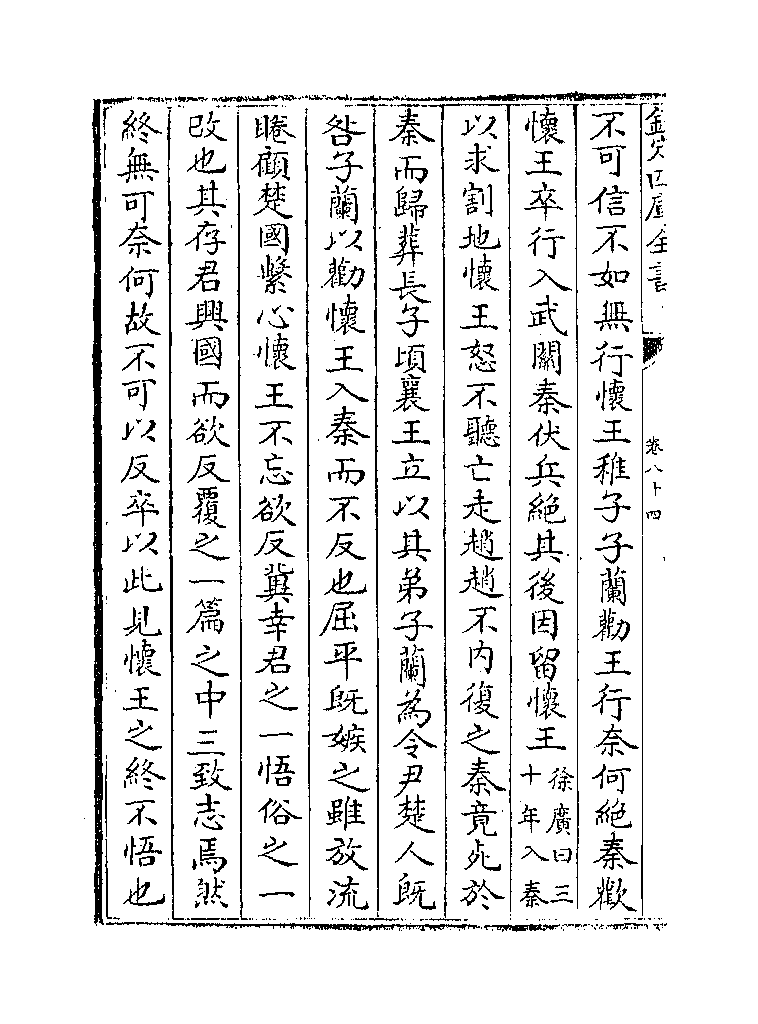 欽定四庫全書
卷八十四
不可信不如無行懷王稚子子蘭勸王行奈何絶秦歡
懷王卒行入武關秦伏兵絶其後因留懷王徐廣曰三十年入秦
以求割地懷王怒不聽亡走趙趙不内復之秦竟死於
秦而歸葬長子頃襄王立以其弟子蘭為令尹楚人既
咎子蘭以勸懷王入秦而不反也屈平既嫉之雖放流
睠顧楚國繫心懷王不忘欲反冀幸君之一悟俗之一
改也其存君興國而欲反覆之一篇之中三致志焉然
終無可奈何故不可以反卒以此見懷王之終不悟也